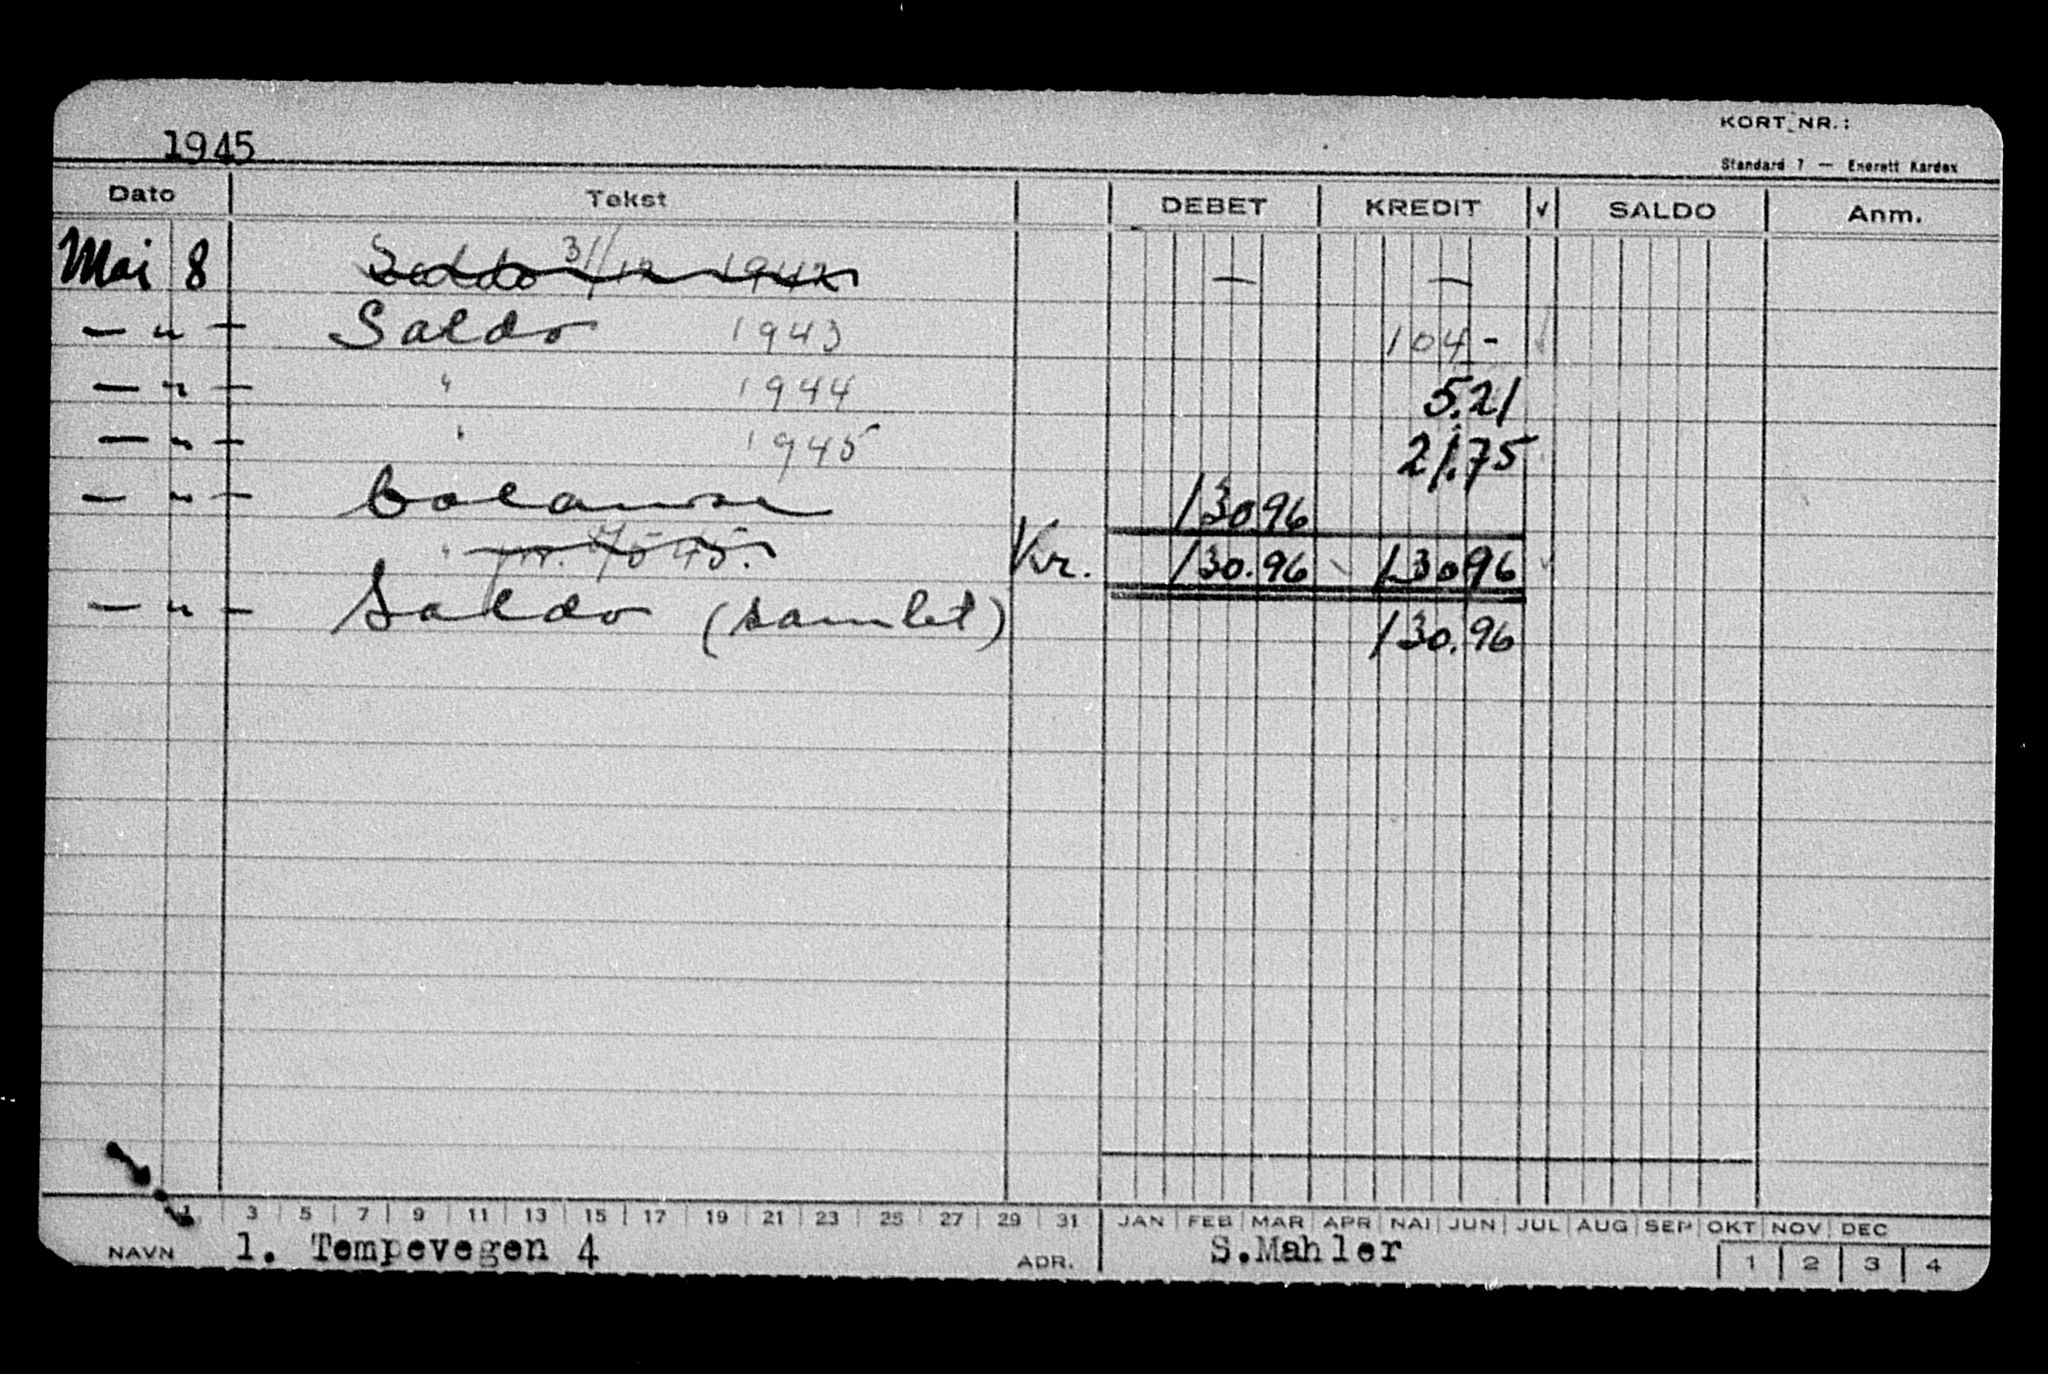 1945
KORT NR.:
Standard 7 — Enerett Kardex
Dato Tekst DEBET KREDIT √ SALDO Anm.
Mai 8 Saldo 31/12 1942 — —
— " — Saldo 1943 104 -
— " — " 1944 5.21
— " — " 1945 21.75
— " — balanse 130.96
" pr. 8/5 45. Kr. 130.96 130.96
— " — Saldo (samlet) 130.96
1 3 5 7 9 11 13 15 17 19 21 23 25 27 29 31 JAN FEB MAR APR MAI JUN JUL AUG SEP OKT NOV DEC
NAVN 1. Tempevegen 4 ADR. S.Mahler 1 2 3 4